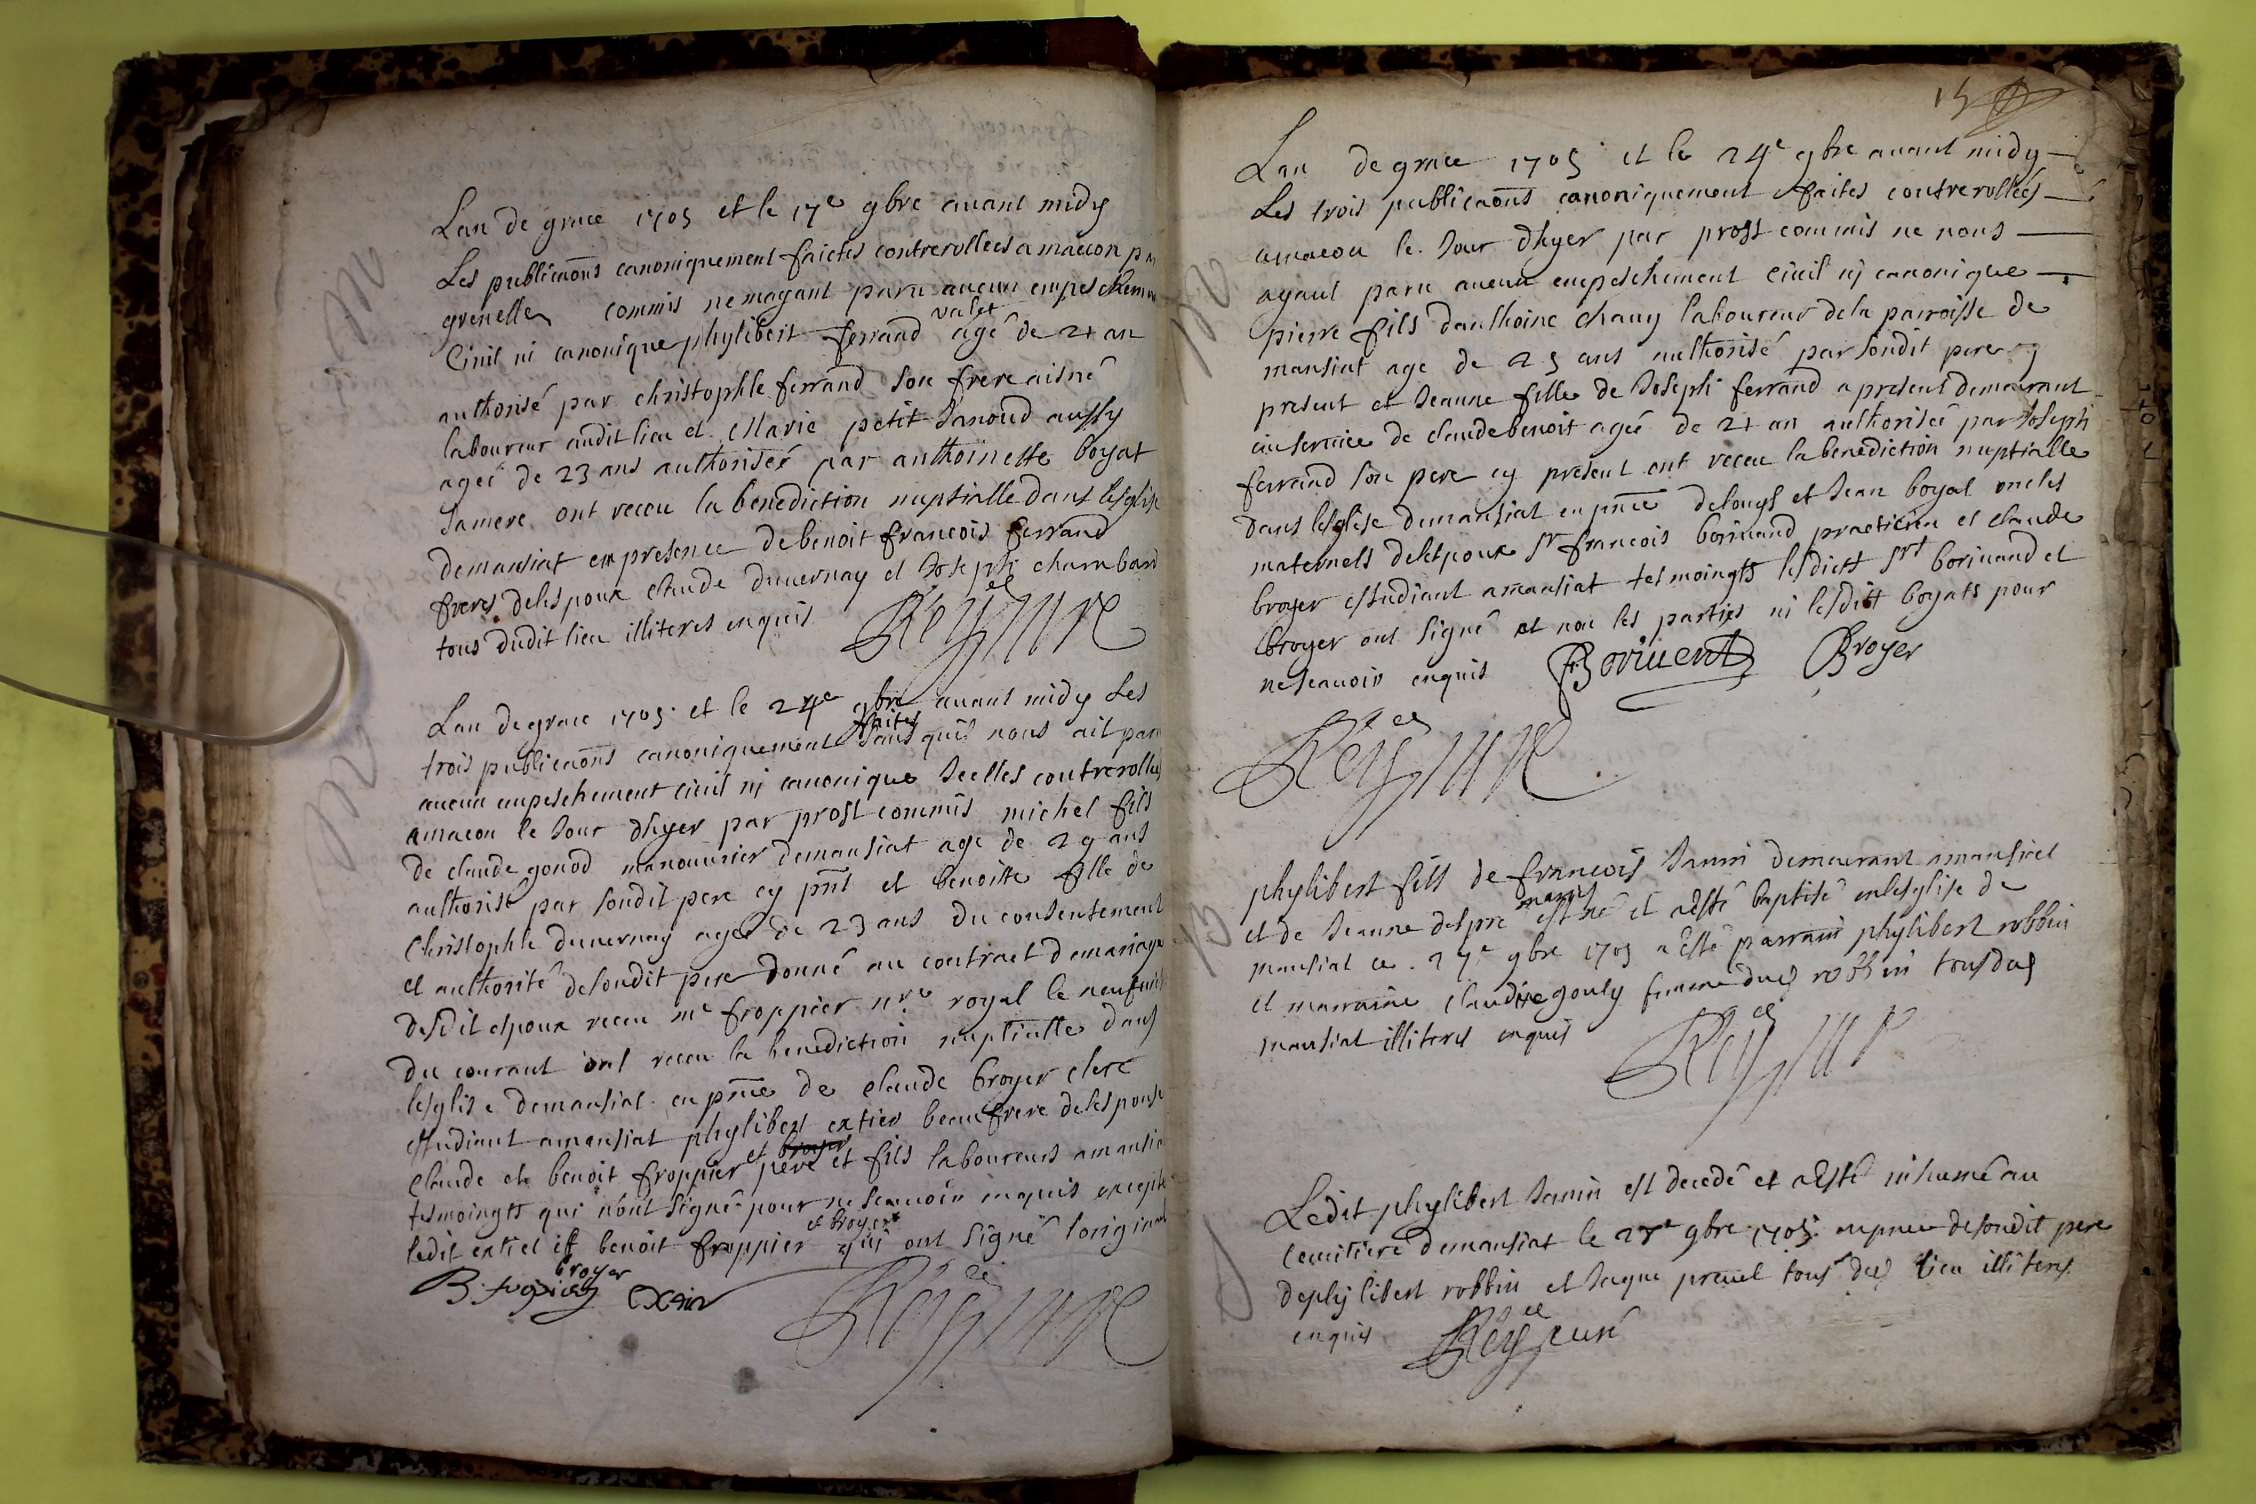 M
Lan de grace 1705 et le 17e gbre avant midy
Les publicaons canoniquement faictes contrerollees a macon par
grenelle commis ne mayant paru aucun empeschem
Civil ni canonique phylibert ferrand valet agé de 21 an
authorisé par christophle ferrand son frere aisné
laboureur audit lieu et Marie petit Janoud aussy
ageé de 23 ans authoriseé par anthoinette boyat
sa mere ont receu la benediction nuptialle dans leglise
demansiat en presence de benoit francois ferrand
freres delespoux claude duvernay et Joseph chambard
tous dudit lieu illiteres enquis
Rey curé
M
Lan de grace 1705 et le 24e gbre avant midy Les
trois publicaons canoniquement faites sans quil nous ait paru
aucun empeschement civil nj canonique Icelles contrerolleés
a macon le Jour dhyer par prost commis michel fils
de claude gonod manouvrier demansiat age de 29 ans
authorisé par sondit pere cy pnt et benoitte fille de
Christophle duvernay ageé de 23 ans du consentement
et authorité desondit pere donné au contract demariage
desdit espoux receu me froppier nre royal le neufvi
du courant ont receu la benediction nuptialle dans
lesglise demansiat en pnce de claude broyer clerc
estudiant amansiat phylibert extier beaufrere delespouse
claude et benoit froppier pere et fils laboureurs amansia
tesmoingts qui nont signé pour ne scavoir enquis excepté
ledit extier et benoit froppier et broyer qui ont signé loriginal
B. fropier broyer Extier
Rey curé
15
M
Lan de grace 1705 et le 24e gbre avant midy
Les trois publicaons canoniquement faites contrerolleés
amacon le Jour dhyer par prost commis ne nous
ayant paru aucun empeschement civil nj canonique
pierre fils danthoine chany laboureur dela parroisse de
mansiat age de 25 ans authorisé par sondit pere cy
present et Jeanne fille de Joseph ferrand a present demeurant
au service de claude benoit ageé de 21 an authoriseé par Joseph
ferrand son pere cy present ont receu la benediction nuptialle
dans lesglise demansiat en pnce delouys et Jean boyat oncles
maternels delespoux sr francois borivand practicien et claude
broyer estudiant amansiat tesmoingts lesdicts srs borivand et
broyer ont signé et non les parties ni lesdits boyats pour
ne scavoir enquis Borivent Broyer
Rey curé
B
phylibert fils de francois Janin demeurant amansiat
et de Jeanne despre mariés est né et a esté baptisé en lesglise de
mansiat ce 27e gbre 1705 a esté parrain phylibert robbin
et marraine claudine gouly femme dud robbin tous dud
mansiat illiteres enquis
Rey curé
Ledit phylibert Janin est decedé et a esté inhumé au
cemitiere demansiat le 27e gbre 1705 en pnce desondit pere
dephylibert robbin et Jaque prevel tous dud lieu illiteres
enquis
Rey curé